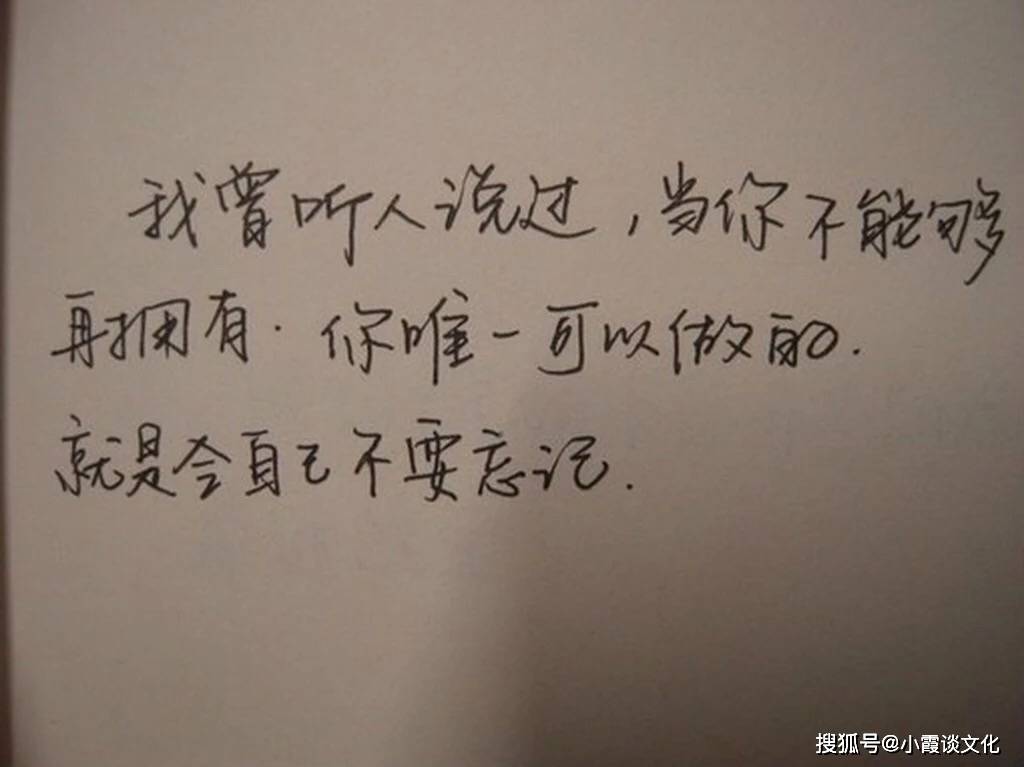 我曾听人说过，当你不能够
再拥有．你唯一可以做的．
就是令自己不要忘记．
搜狐号@小霞谈文化